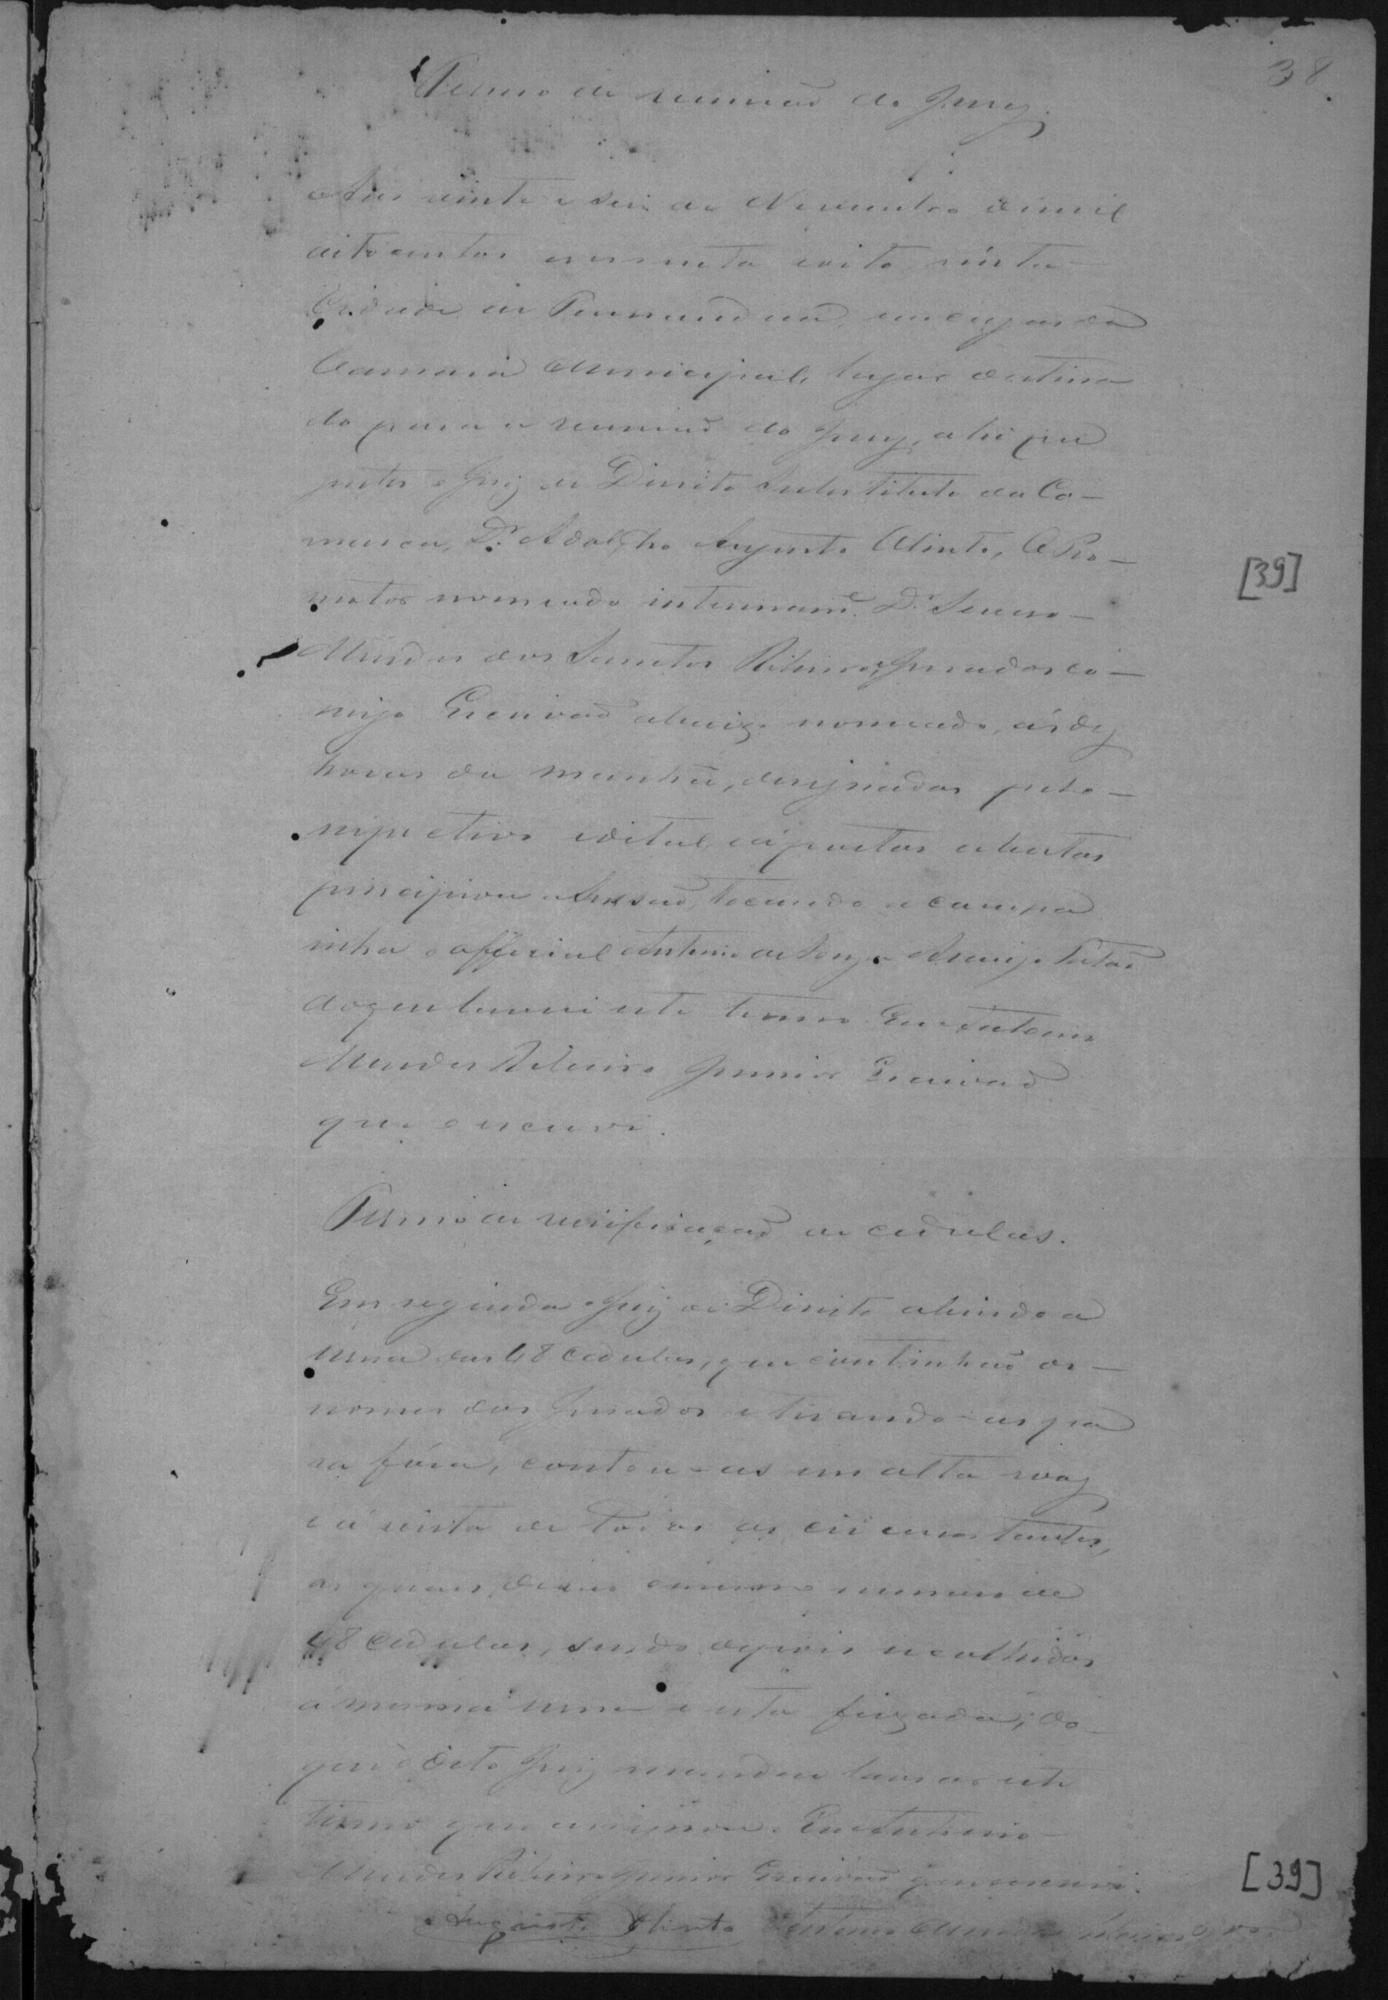 38
Termo de reunião do Jury.
Aos vinte e seis de Novembro de mil
oitocentos e sessenta e oito, nésta
Cidade de em casas da
Camara Municipal, lugar destina
do para a reunião do Jury, ahi pre
zentes o Juiz de Direito Substituto da Co-
marca, Dr. Adolpho Augusto Olinto, O Pro-
motor nomeado interinamᵉ. Dr.
Mendes dos Santos Ribeiro, Jurados co-
migo Escrivaõ abaixo nomeado, ás dez
horas da manhã, designadas pelo
respectivo edital, a portas abertas
principiou a Sessaõ, tocando a campa
inha o official Antonio de Souza Araujo
do que lavrei este termo. Eu Antonio
Mendes Ribeiro Junior Escrivaõ
que escrevi.
Termo de verificaçaõ de cedulas.
Em seguida o Juiz de Direito abrindo a
urna das 48 cedulas, que continhaõ os
nomes dos Jurados e tirando-as pa
ra fóra, contou-as em alta voz
e á vista de todos os circunstantes,
as quaes deraõ o mesmo numero de
48 cedulas, sendo depois recolhidas
á mesma urna e esta fexada; do
que o dito Juiz mandou lavrar este
termo que assignou. Eu Antonio
Mendes Ribeiro Junior Escrivaõ que escrevi.
Augusto Olinto Antonio Mendes Ribeiro
[39]
[39]